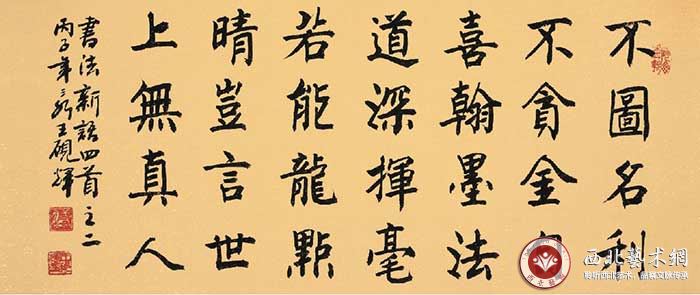 不圖名利
不貪金
喜翰墨法
道深揮毫
若能龍點
晴豈言世
上無真人
書法新語四首之二
丙子年 王硯輝
西北藝术網
聆听西北艺术